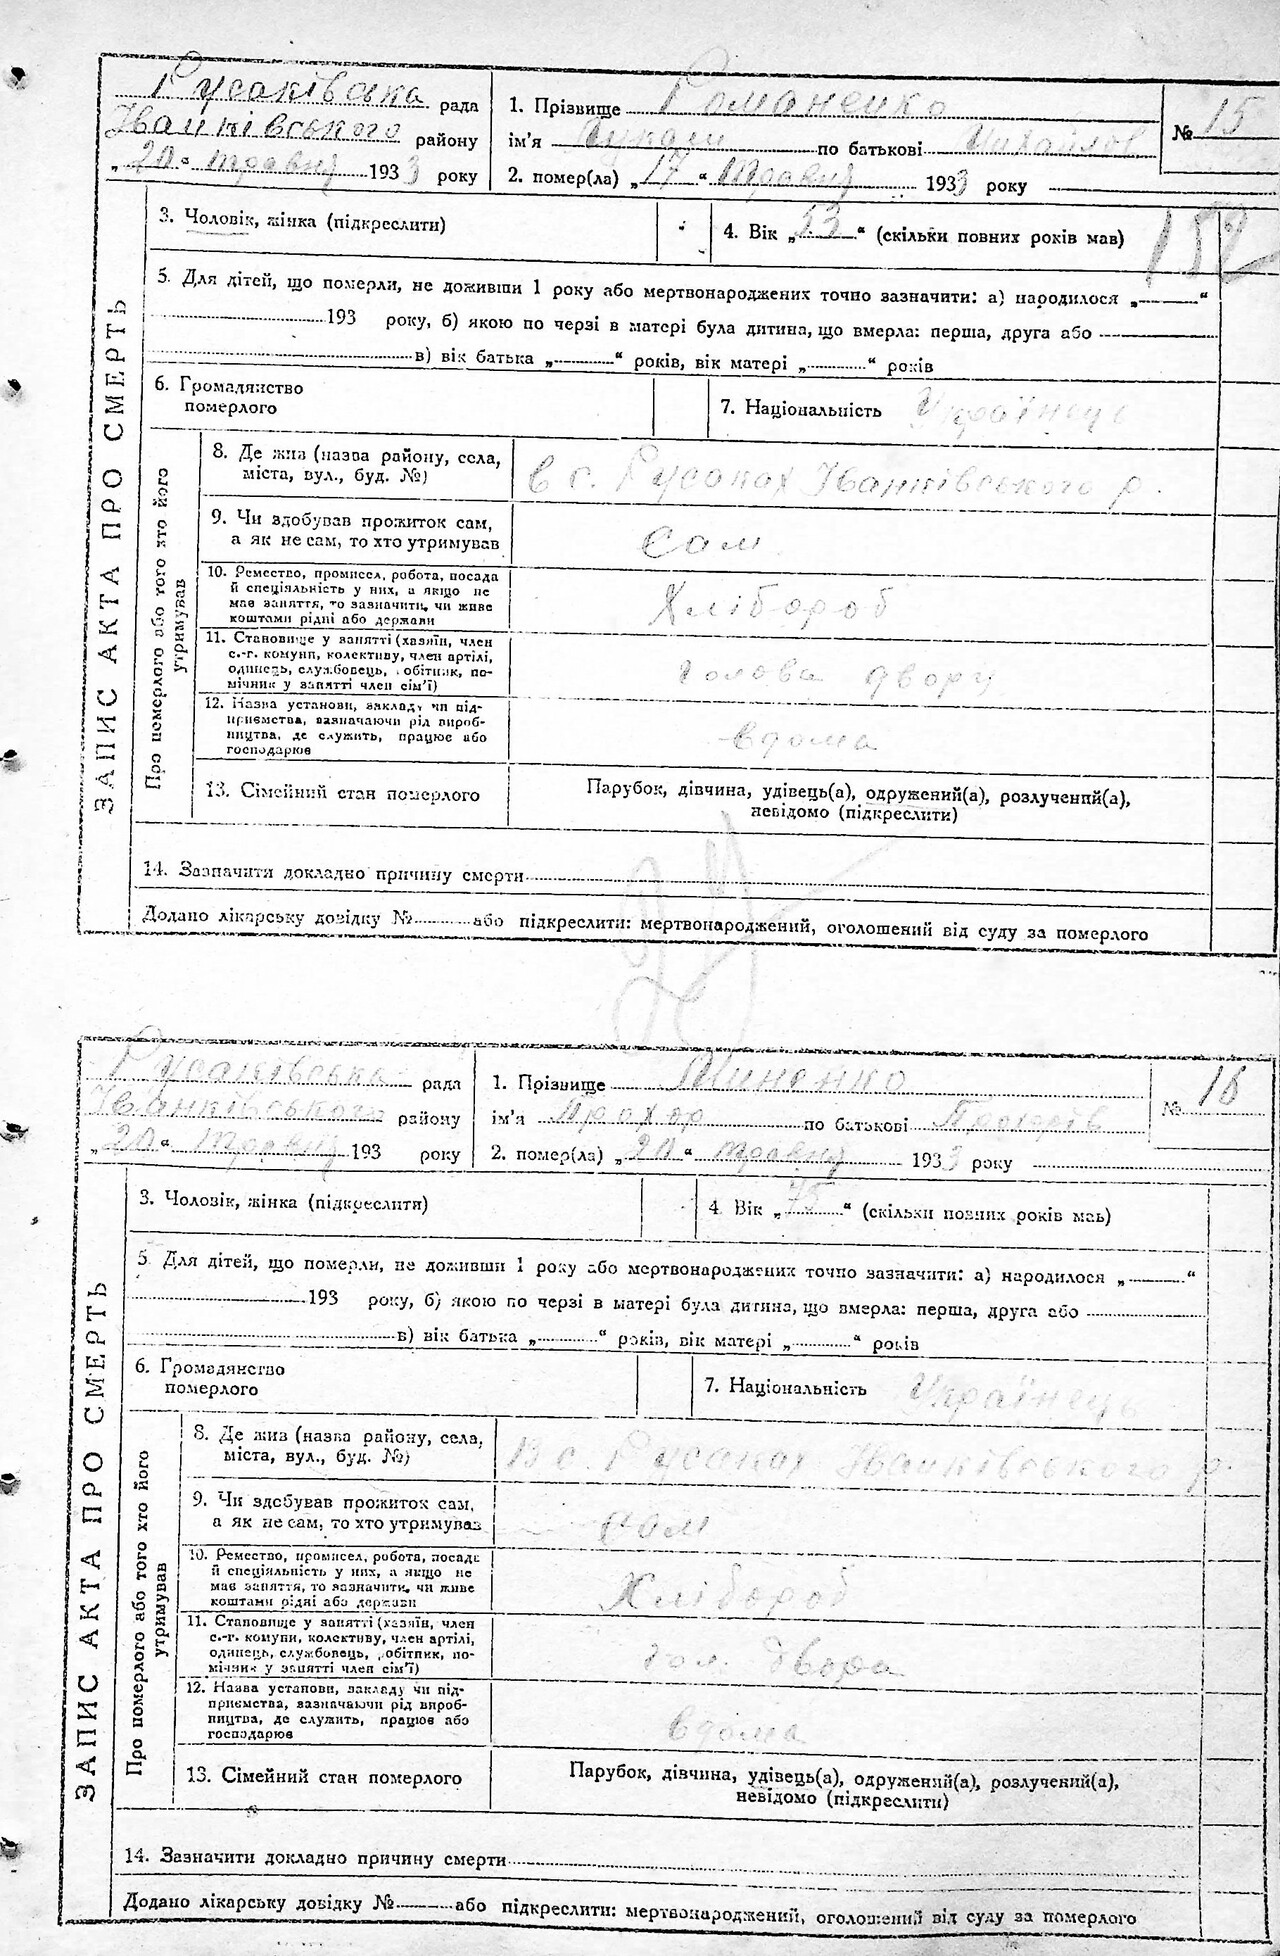 Русаківська рада
Іванківського району
„20“ травня 1933 року
1. Прізвище Романенко
ім'я Лукаш по батькові Михайлов
2. помер(ла) „17“ травня 1933 року
№ 15
152
ЗАПИС АКТА ПРО СМЕРТЬ
3. Чоловік, жінка (підкреслити)
4. Вік „53“ (скільки повних років мав)
5. Для дітей, що померли, не доживши 1 року або мертвонароджених точно зазначити: а) народилося „ “
193 року, б) якою по черзі в матері була дитина, що вмерла: перша, друга або
в) вік батька „ “ років, вік матері „ “ років
6. Громадянство
померлого
7. Національність Українець
Про померлого або того хто його
утримував
8. Де жив (назва району, села,
міста, вул., буд. №)
в с. Русаках Іванківського р.
9. Чи здобував прожиток сам,
а як не сам, то хто утримував
Сам
10. Ремество, промисел, робота, посада
й спеціяльність у них, а якщо не
має заняття, то зазначити, чи живе
коштами рідні або держави
Хлібороб
11. Становище у занятті (хазяїн, член
с.-г. комуни, колективу, член артілі,
одинець, службовець, робітник, по-
мічник у занятті член сім'ї)
голова двору
12. Назва установи, закладу чи під-
приємства, зазначаючи рід вироб-
ництва, де служить, працює або
господарює
вдома
13. Сімейний стан померлого
Парубок, дівчина, удівець(а), одружений(а), розлучений(а),
невідомо (підкреслити)
14. Зазначити докладно причину смерти
Додано лікарську довідку № або підкреслити: мертвонароджений, оголошений від суду за померлого
Русаківська рада
Іванківського району
„20“ травня 193 року
1. Прізвище Миненко
ім'я Прохор по батькові
2. помер(ла) „20“ травня 1933 року
№ 16
ЗАПИС АКТА ПРО СМЕРТЬ
3. Чоловік, жінка (підкреслити)
4. Вік „75“ (скільки повних років мав)
5. Для дітей, що померли, не доживши 1 року або мертвонароджених точно зазначити: а) народилося „ “
193 року, б) якою по черзі в матері була дитина, що вмерла: перша, друга або
в) вік батька „ “ років, вік матері „ “ років
6. Громадянство
померлого
7. Національність Українець
Про померлого або того хто його
утримував
8. Де жив (назва району, села,
міста, вул., буд. №)
В с. Русаках Іванківського р.
9. Чи здобував прожиток сам,
а як не сам, то хто утримував
сам
10. Ремество, промисел, робота, посада
й спеціяльність у них, а якщо не
має заняття, то зазначити, чи живе
коштами рідні або держави
Хлібороб
11. Становище у занятті (хазяїн, член
с.-г. комуни, колективу, член артілі,
одинець, службовець, робітник, по-
мічник у занятті член сім'ї)
гол. двора
12. Назва установи, закладу чи під-
приємства, зазначаючи рід вироб-
ництва, де служить, працює або
господарює
вдома
13. Сімейний стан померлого
Парубок, дівчина, удівець(а), одружений(а), розлучений(а),
невідомо (підкреслити)
14. Зазначити докладно причину смерти
Додано лікарську довідку № або підкреслити: мертвонароджений, оголошений від суду за померлого